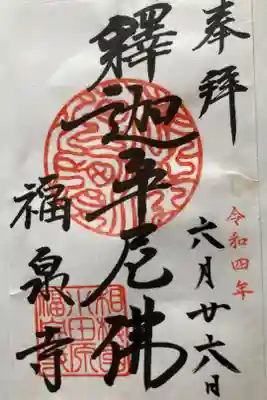 奉拝
令和四年
六月廿六日
釋迦牟尼佛
福泉寺
小田原